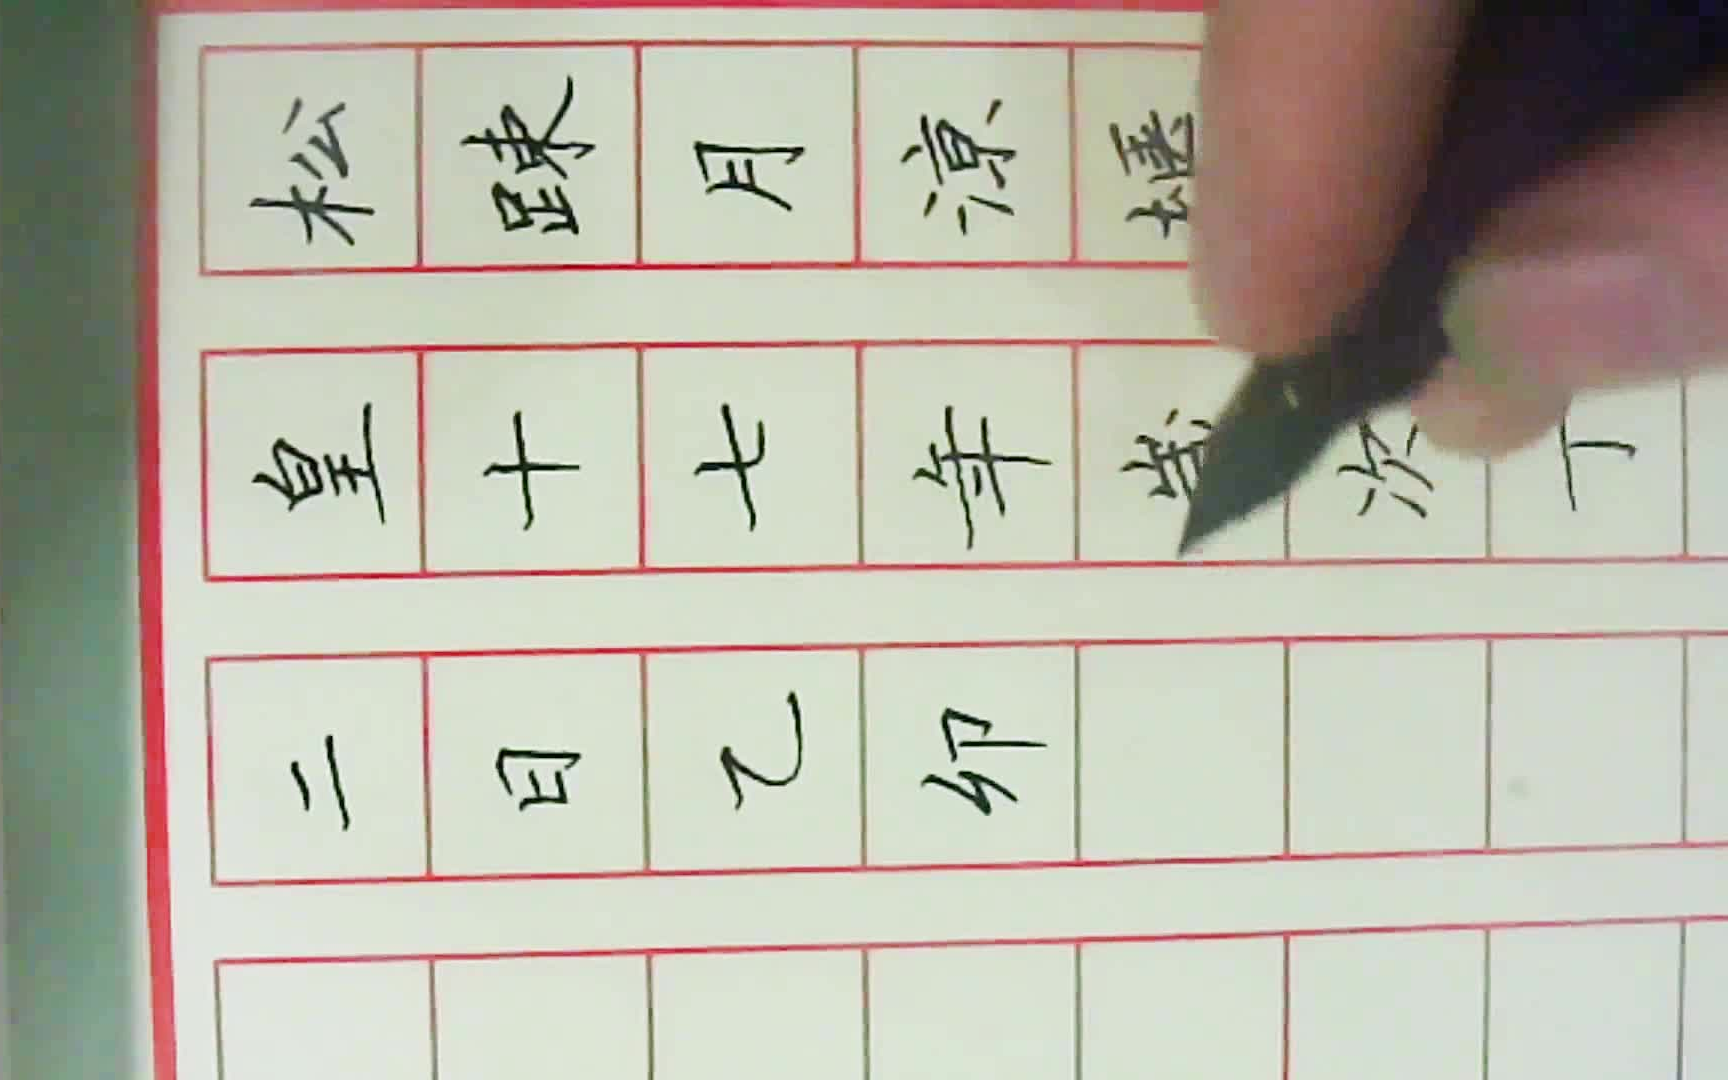 松踈月涼
皇十七年歲次丁
二日乙卯